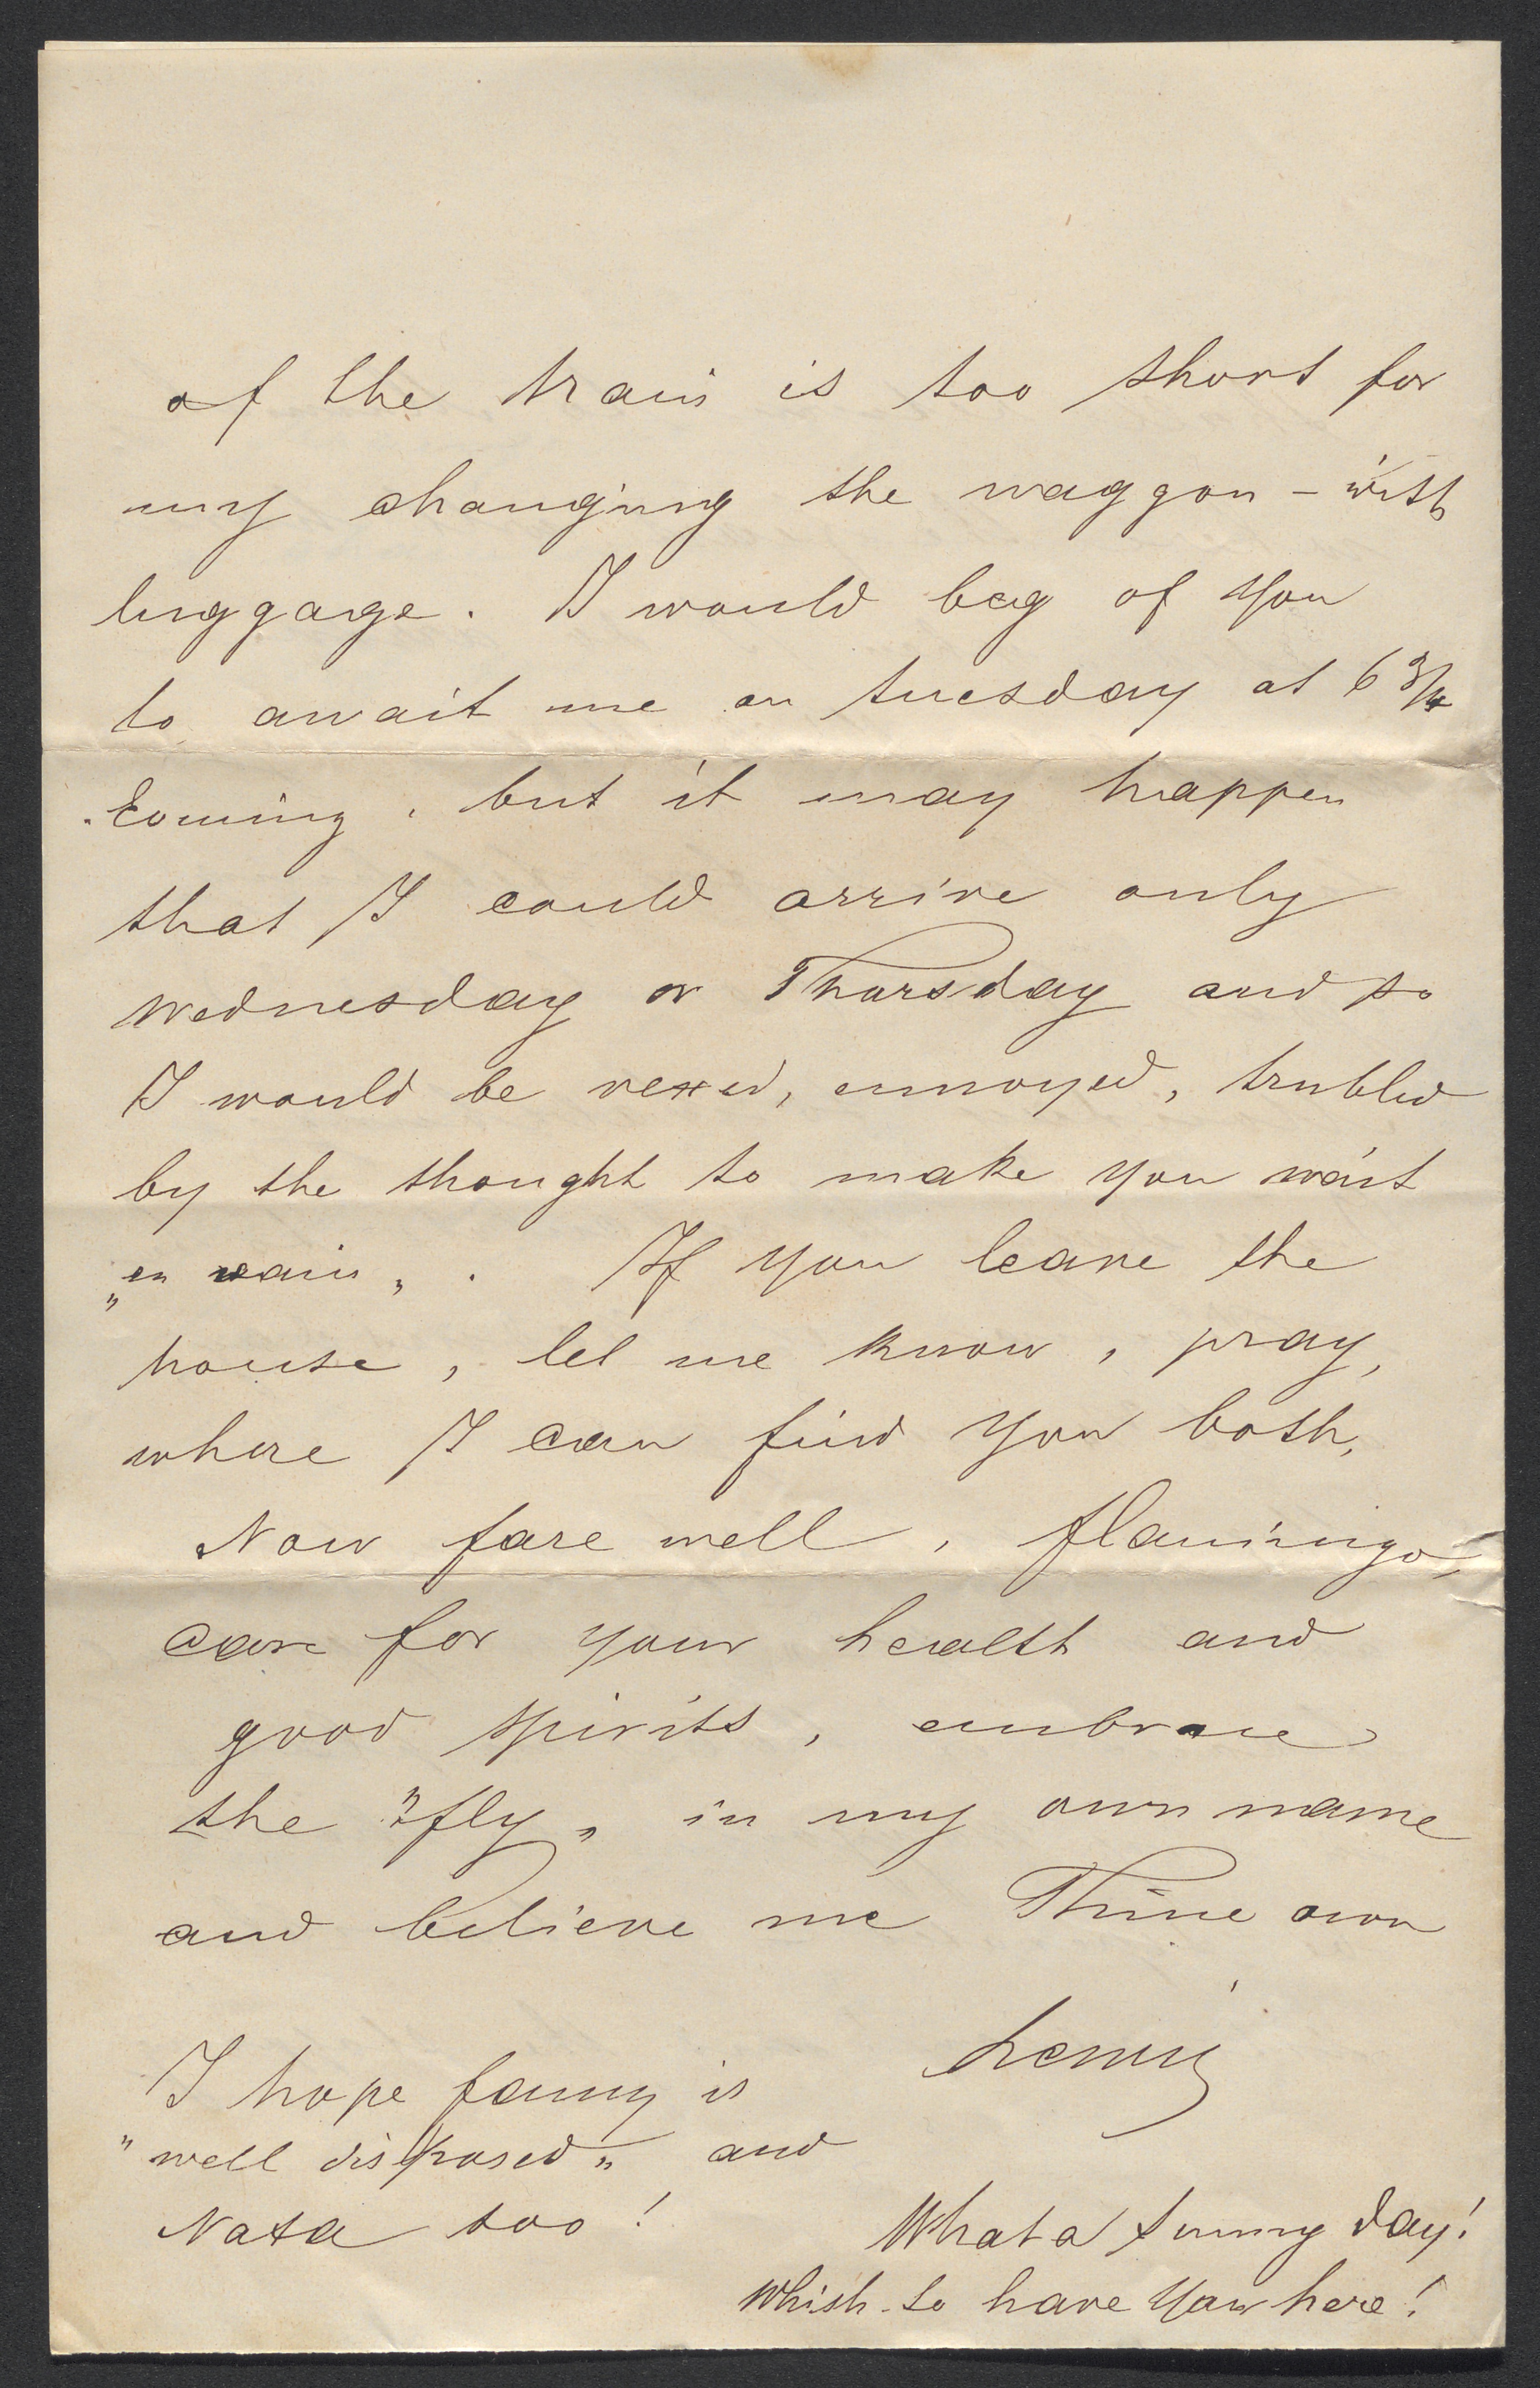 of the train is too short for
my changing the waggon - with
luggage. I would beg of you
to await me on tuesday at 6 3/4
Evening, but it may happen
that I could arrive only
wednesday or Thursday and so
I would be vexed, ennoyed, trubled
by the thought to make you wait
„en vain„. If you leave the
house, let me know, pray,
where I can find you both,
Now fare well, flamingo,
care for your health and
good spirits, embrace
the "fly„ in my own name
and believe me Thine own
henry
I hope fanny is
"well disposed„ and
Nata too!
What a sunny day!
Whish to have you here!